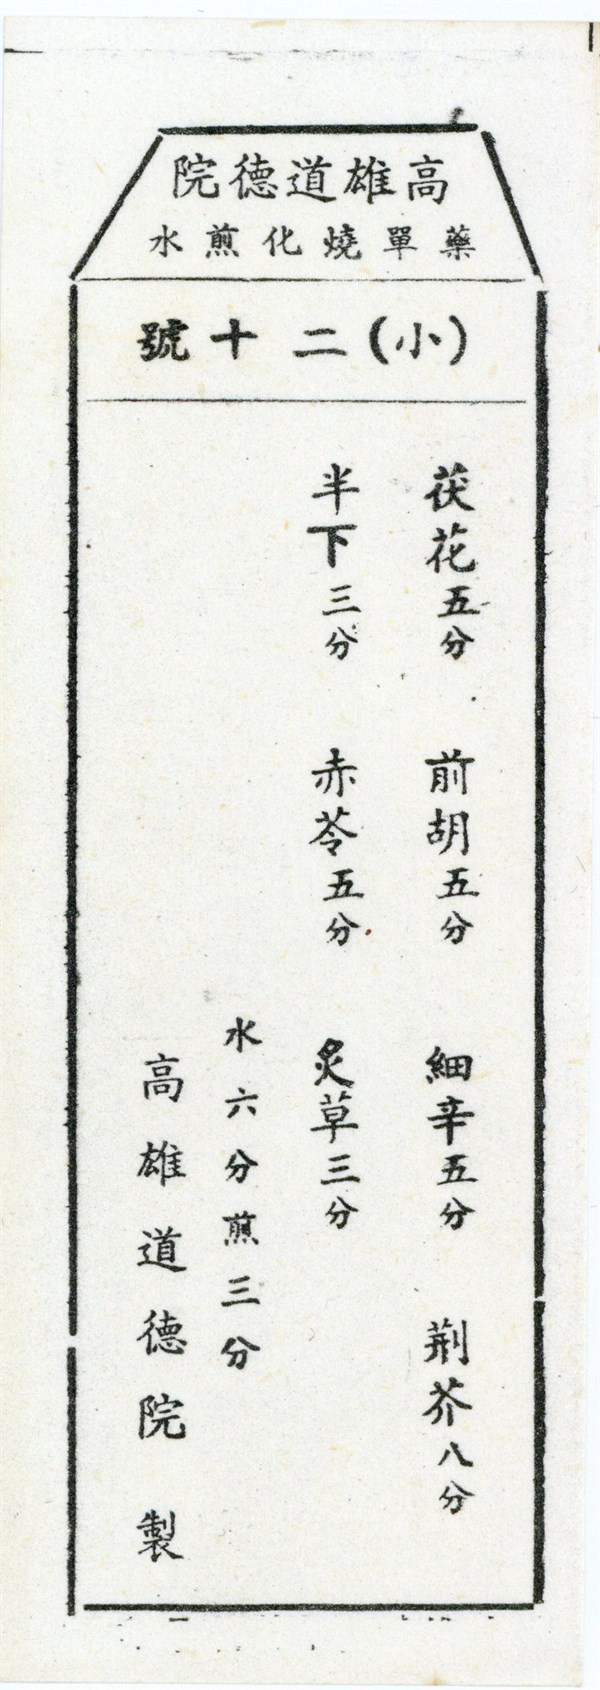 高雄道德院
藥單燒化煎水
(小)二十號
茯花五分 前胡五分 細辛五分 荆芥八分
半下三分 赤苓五分 炙草三分
水六分煎三分
高雄道德院 製